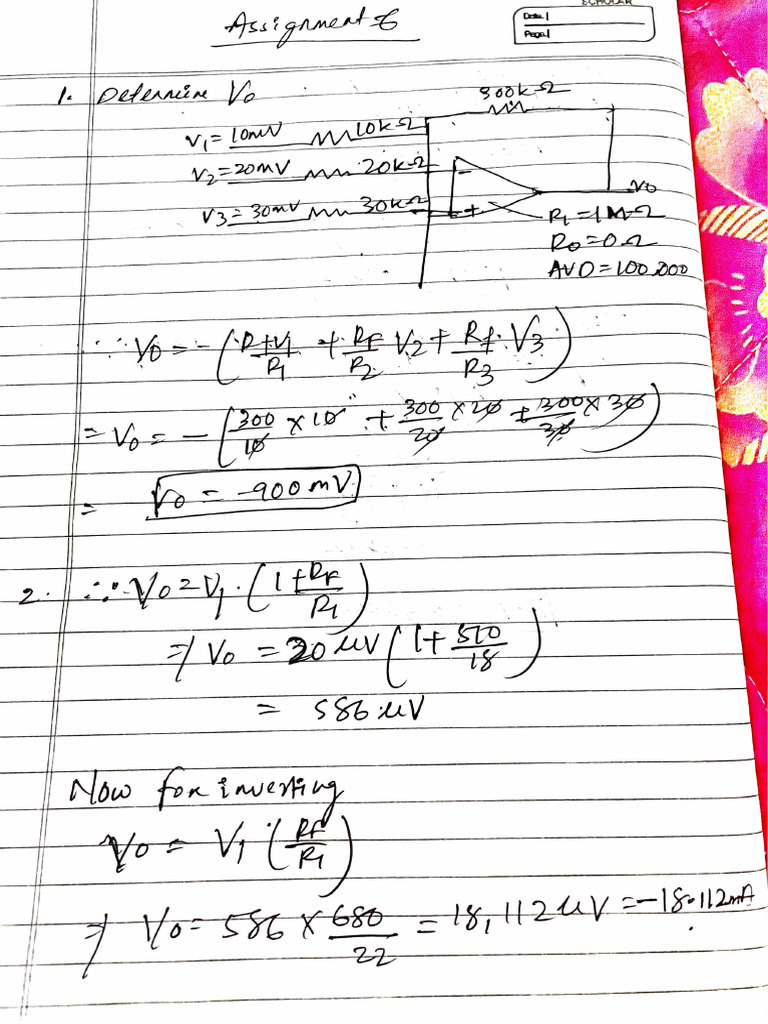 SCHOLAR
Assignment 6
Date |
Page |
1. Determine V0
300kΩ
V1 = 10mV 10kΩ
V2 = 20mV 20kΩ
V3 = 30mV 30kΩ
-
+
V0
Ri = 1MΩ
R0 = 0Ω
AVD = 100,000
∴ V0 = -(Rf V1/R1 + Rf/R2 V2 + Rf/R3 · V3)
= V0 = -(300/10 × 10 + 300/20 × 20 + 300/30 × 30)
= V0 = -900mV
2. ∴ V0 = V1 · (1 + RF/R1)
⇒ V0 = 20 μV (1 + 510/18)
= 586 μV
Now for inverting
V0 = V1 (RF/R1)
⇒ V0 = 586 × 680/22 = 18,112 μV = -18.112mA